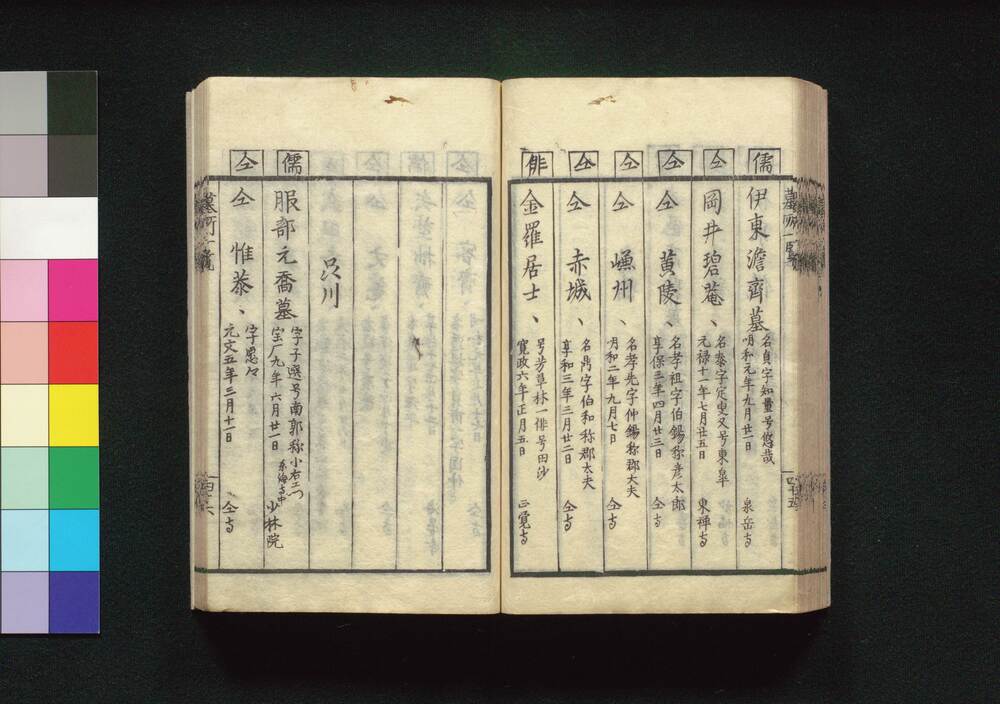 儒
伊東澹齊墓
名貞字知量号悠哉
明和元年九月廿一日
泉岳寺
仝
岡井碧菴、
名泰字定叟又号東皐
元禄十一年七月廿五日
東禅寺
仝
仝 黄陵、
名孝祖字伯錫称彦太郎
享保三年四月廿三日
仝寺
仝
仝 嵰州、
名孝先字仲錫称郡太夫
明和二年九月七日
仝寺
仝
仝 赤城、
名鼎字伯和称郡太夫
享和三年三月廿二日
仝寺
俳
金羅居士、
号芳草林一俳号田沙
寛政六年正月五日
正覚寺
品川
儒
服部元喬墓
字子遷号南郭称小右エ門
宝暦九年六月廿一日
東海寺中
少林院
仝
仝 惟恭、
字愿々
元文五年三月十一日
仝寺
墓所一覧
四十六